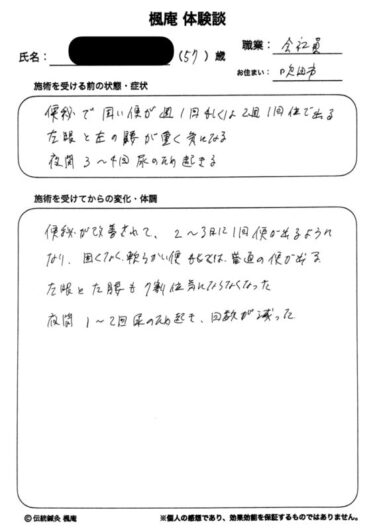 楓庵 体験談
氏名: (57) 歳
職業: 会社員
お住まい: 吹田市
施術を受ける前の状態・症状
便秘で固い便が週1回もしくは2週1回位で出る
左眼と左の腰が重く気になる
夜間3〜4回尿のため起きる
施術を受けてからの変化・体調
便秘が改善されて、2〜3日に1回便が出るように
なり、固くなく、軟らかい便もしくは普通の便が出る
左眼と左腰も7割位気にならなくなった
夜間1〜2回尿のため起き、回数が減った
© 伝統鍼灸 楓庵
※個人の感想であり、効果効能を保証するものではありません。